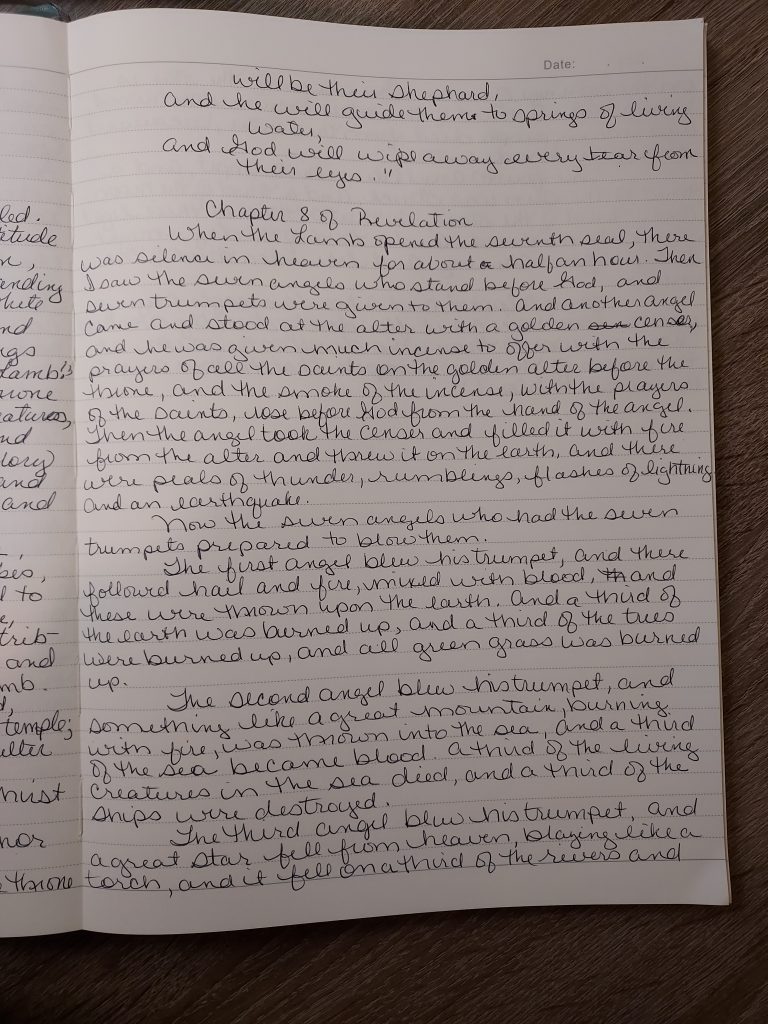 Date:
will be their shephard,
and he will guide them to springs of living
water,
and God will wipe away every tear from
their eyes."
Chapter 8 of Revelation
When the Lamb opened the seventh seal, there
was silence in heaven for about a half an hour. Then
I saw the seven angels who stand before God, and
seven trumpets were given to them. And another angel
came and stood at the alter with a golden cen censer,
and he was given much incense to offer with the
prayers of all the saints on the golden alter before the
throne, and the smoke of the incense, with the prayers
of the saints, rose before God from the hand of the angel.
Then the angel took the censer and filled it with fire
from the alter and threw it on the earth, and there
were peals of thunder, rumblings, flashes of lightning
and an earthquake.
Now the seven angels who had the seven
trumpets prepared to blow them.
The first angel blew his trumpet, and there
followed hail and fire, mixed with blood, th and
these were thrown upon the earth. And a third of
the earth was burned up, and a third of the trees
were burned up, and all green grass was burned
up.
The second angel blew his trumpet, and
something like a great mountain, burning
with fire, was thrown into the sea, and a third
of the sea became blood. A third of the living
creatures in the sea died, and a third of the
ships were destroyed.
The third angel blew his trumpet, and
a great star fell from heaven, blazing like a
torch, and it fell on a third of the rivers and
led.
titude
n,
anding
white
nd
ngs
Lamb!"
throne
eatures,
nd
lory
and
and
bes,
d to
e,
trib-
and
mb.
d,
temple;
elter
hirst
nor
throne